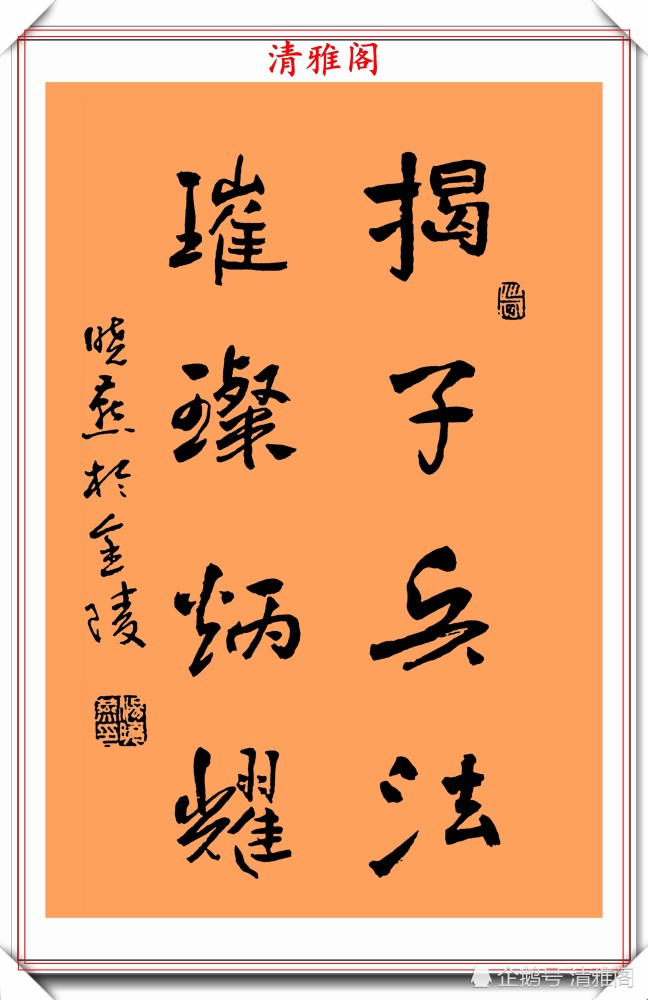 清雅阁
揭子兵法
璀璨炳耀
晓燕於金陵
企鹅号 清雅阁